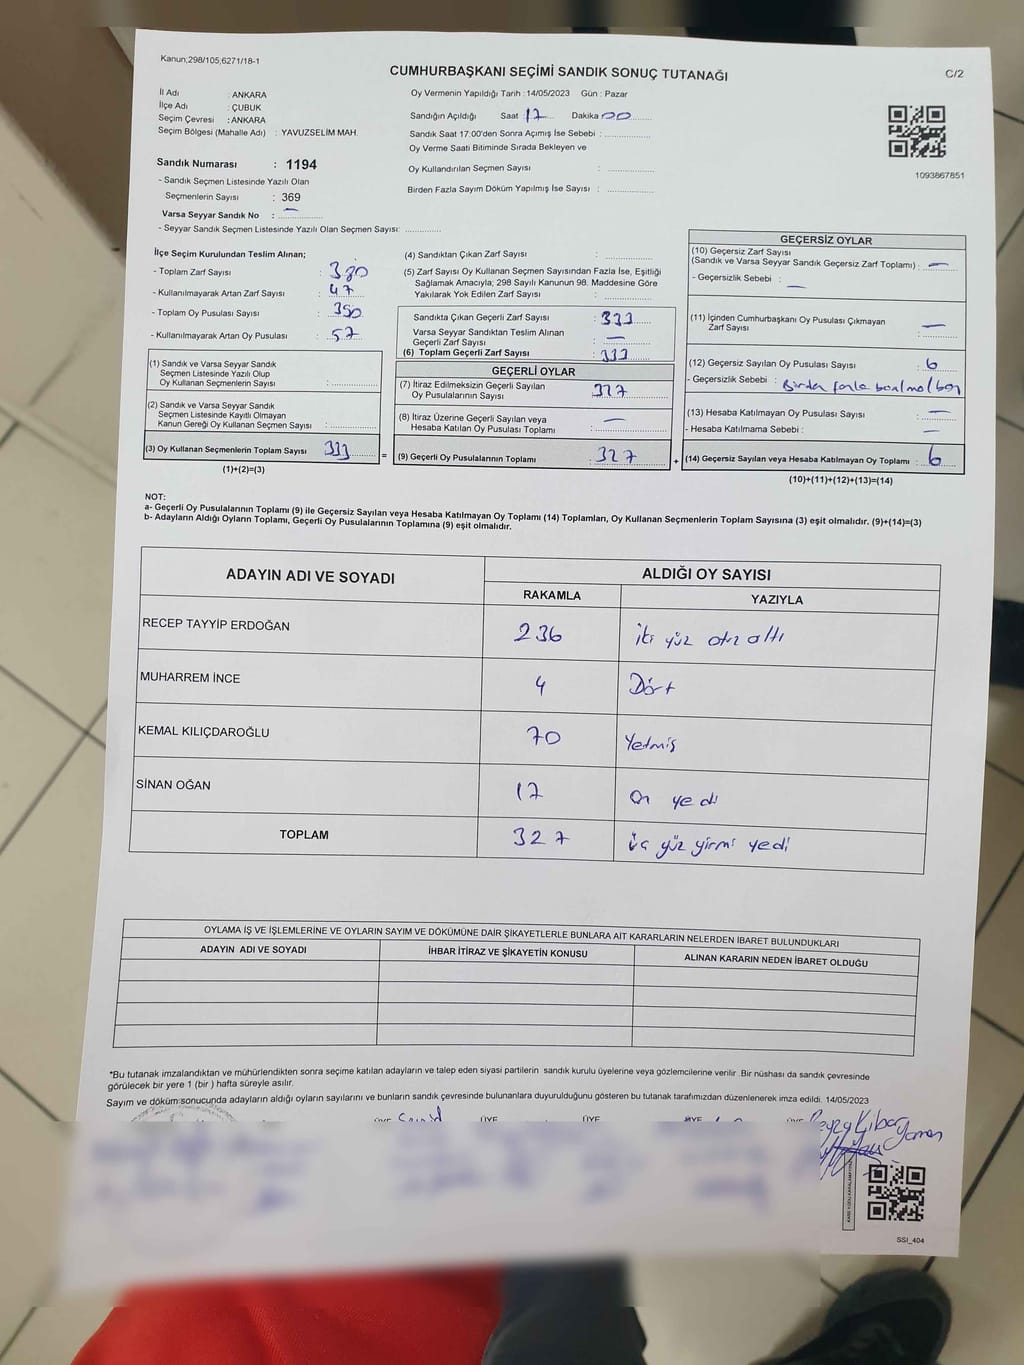 Kanun;298/105;6271/18-1
CUMHURBAŞKANI SEÇİMİ SANDIK SONUÇ TUTANAĞI
C/2
İl Adı : ANKARA
İlçe Adı : ÇUBUK
Seçim Çevresi : ANKARA
Seçim Bölgesi (Mahalle Adı) : YAVUZSELİM MAH.
Oy Vermenin Yapıldığı Tarih :14/05/2023 Gün : Pazar
Sandığın Açıldığı Saat 17 Dakika 00
Sandık Saat 17:00'den Sonra Açımış İse Sebebi :
Oy Verme Saati Bitiminde Sırada Bekleyen ve
Oy Kullandırılan Seçmen Sayısı :
Birden Fazla Sayım Döküm Yapılmış İse Sayısı :
1093867851
Sandık Numarası : 1194
- Sandık Seçmen Listesinde Yazılı Olan
Seçmenlerin Sayısı : 369
Varsa Seyyar Sandık No : —
- Seyyar Sandık Seçmen Listesinde Yazılı Olan Seçmen Sayısı:
İlçe Seçim Kurulundan Teslim Alınan;
- Toplam Zarf Sayısı : 380
- Kullanılmayarak Artan Zarf Sayısı : 47
- Toplam Oy Pusulası Sayısı : 390
- Kullanılmayarak Artan Oy Pusulası : 57
(1) Sandık ve Varsa Seyyar Sandık
Seçmen Listesinde Yazılı Olup
Oy Kullanan Seçmenlerin Sayısı :
(2) Sandık ve Varsa Seyyar Sandık
Seçmen Listesinde Kayıtlı Olmayan
Kanun Gereği Oy Kullanan Seçmen Sayısı :
(3) Oy Kullanan Seçmenlerin Toplam Sayısı 333
(1)+(2)=(3)
(4) Sandıktan Çıkan Zarf Sayısı :
(5) Zarf Sayısı Oy Kullanan Seçmen Sayısından Fazla İse, Eşitliği
Sağlamak Amacıyla; 298 Sayılı Kanunun 98. Maddesine Göre
Yakılarak Yok Edilen Zarf Sayısı :
Sandıkta Çıkan Geçerli Zarf Sayısı : 333
Varsa Seyyar Sandıktan Teslim Alınan
Geçerli Zarf Sayısı : —
(6) Toplam Geçerli Zarf Sayısı : 333
GEÇERLİ OYLAR
(7) İtiraz Edilmeksizin Geçerli Sayılan
Oy Pusulalarının Sayısı : 327
(8) İtiraz Üzerine Geçerli Sayılan veya
Hesaba Katılan Oy Pusulası Toplamı : —
= (9) Geçerli Oy Pusulalarının Toplamı : 327
GEÇERSİZ OYLAR
(10) Geçersiz Zarf Sayısı
(Sandık ve Varsa Seyyar Sandık Geçersiz Zarf Toplamı) : —
- Geçersizlik Sebebi : —
(11) İçinden Cumhurbaşkanı Oy Pusulası Çıkmayan
Zarf Sayısı : —
(12) Geçersiz Sayılan Oy Pusulası Sayısı : 6
- Geçersizlik Sebebi : Birden fazla
(13) Hesaba Katılmayan Oy Pusulası Sayısı : —
- Hesaba Katılmama Sebebi : —
+ (14) Geçersiz Sayılan veya Hesaba Katılmayan Oy Toplamı : 6
(10)+(11)+(12)+(13)=(14)
NOT:
a- Geçerli Oy Pusulalarının Toplamı (9) ile Geçersiz Sayılan veya Hesaba Katılmayan Oy Toplamı (14) Toplamları, Oy Kullanan Seçmenlerin Toplam Sayısına (3) eşit olmalıdır. (9)+(14)=(3)
b- Adayların Aldığı Oyların Toplamı, Geçerli Oy Pusulalarının Toplamına (9) eşit olmalıdır.
ADAYIN ADI VE SOYADI ALDIĞI OY SAYISI
RAKAMLA YAZIYLA
RECEP TAYYİP ERDOĞAN 236 iki yüz otuz altı
MUHARREM İNCE 4 Dört
KEMAL KILIÇDAROĞLU 70 Yetmiş
SİNAN OĞAN 17 On yedi
TOPLAM 327 üç yüz yirmi yedi
OYLAMA İŞ VE İŞLEMLERİNE VE OYLARIN SAYIM VE DÖKÜMÜNE DAİR ŞİKAYETLERLE BUNLARA AİT KARARLARIN NELERDEN İBARET BULUNDUKLARI
ADAYIN ADI VE SOYADI İHBAR İTİRAZ VE ŞİKAYETİN KONUSU ALINAN KARARIN NEDEN İBARET OLDUĞU
*Bu tutanak imzalandıktan ve mühürlendikten sonra seçime katılan adayların ve talep eden siyasi partilerin sandık kurulu üyelerine veya gözlemcilerine verilir .Bir nüshası da sandık çevresinde
görülecek bir yere 1 (bir ) hafta süreyle asılır.
Sayım ve döküm sonucunda adayların aldığı oyların sayılarını ve bunların sandık çevresinde bulunanlara duyurulduğunu gösteren bu tutanak tarafımızdan düzenlenerek imza edildi. 14/05/2023
ÜYE ÜYE ÜYE ÜYE ÜYE
SSI_404